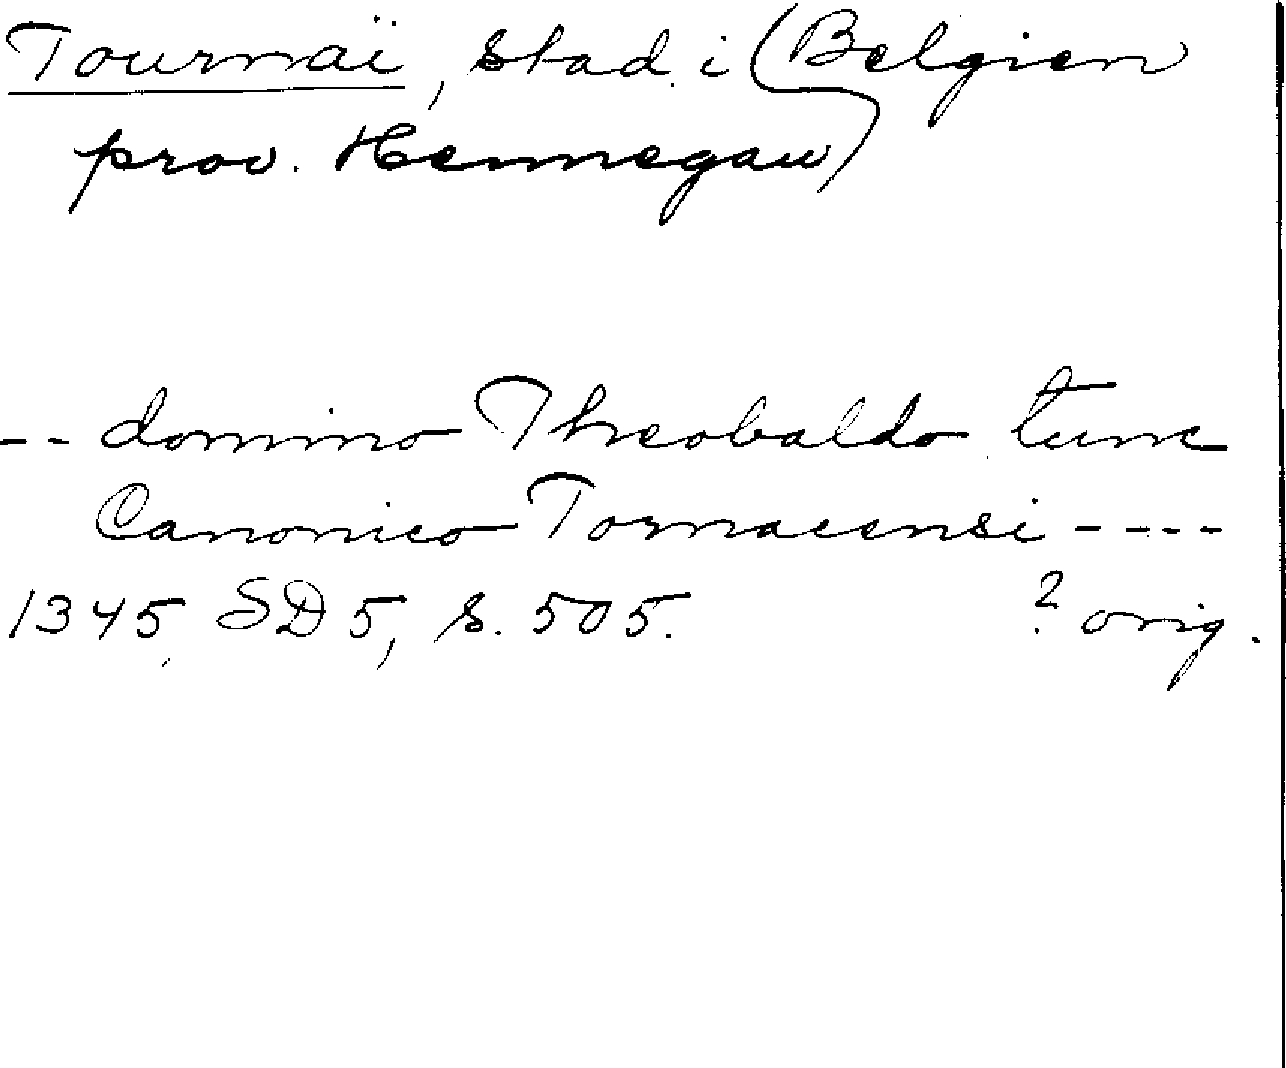 Tournaï, stad i (Belgien
prov. Hennegau)
-- domino Theobaldo tunc
Canonico Tornacensi ----
1345, SD 5, s. 505. ? orig.